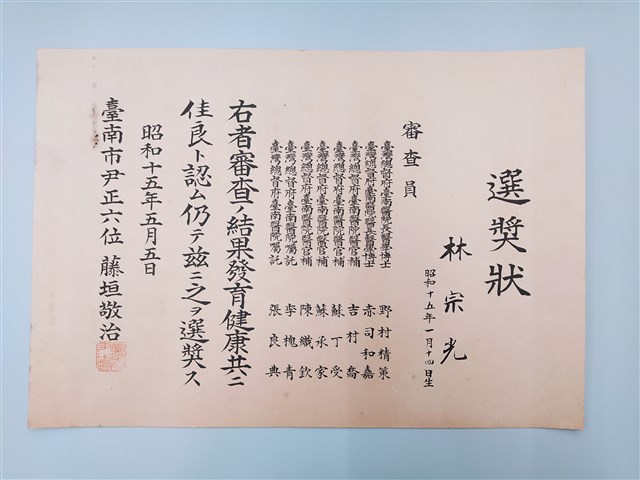 選奬狀
林宗光
昭和十五年一月十四日生
審查員
臺灣總督府臺南醫院長醫學博士 野村精策
臺灣總督府臺南醫院醫長醫學博士 赤司和嘉
臺灣總督府臺南醫院醫官補 吉村喬
臺灣總督府臺南醫院醫官補 蘇丁受
臺灣總督府臺南醫院醫官補 蘇承家
臺灣總督府臺南醫院醫官補 陳纖欽
臺灣總督府臺南醫院囑託 李槐青
臺灣總督府臺南醫院囑託 張良典
右者審查ノ結果發育健康共ニ
佳良ト認ム仍テ茲ニ之ヲ選奬ス
昭和十五年五月五日
臺南市尹正六位 藤垣敬治